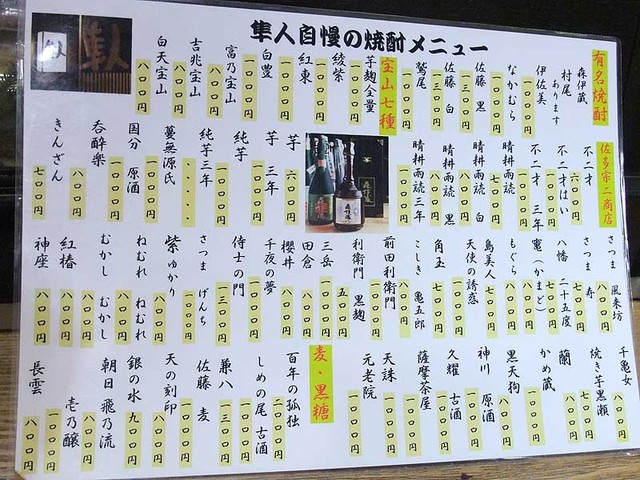 隼人自慢の焼酎メニュー
有名焼酎
森伊蔵
村尾
あります
伊佐美
一〇〇〇円
なかむら
一〇〇〇円
佐藤 黒
一三〇〇円
佐藤 白
一三〇〇円
鷲尾
一〇〇〇円
宝山七種
芋麹全量
一〇〇〇円
綾紫
一〇〇〇円
紅東
一〇〇〇円
白豊
一〇〇〇円
富乃宝山
一〇〇〇円
吉兆宝山
八〇〇円
白天宝山
八〇〇円
佐多宗二商店
不二才
六〇〇円
不二才はい
一〇〇〇円
不二才 三年
一〇〇〇円
晴耕雨読
七〇〇円
晴耕雨読 白
晴耕雨読 黒
八〇〇円
晴耕雨読 三年
一〇〇〇円
芋
六〇〇円
芋 三年
純芋
純芋 三年
蔓無源氏
国分 原酒
一〇〇〇円
呑酔楽
八〇〇円
きんざん
七〇〇円
さつま 風来坊
八〇〇円
さつま 寿
八〇〇円
八幡
八〇〇円
二十五度
竈(かまど)
もぐら
八〇〇円
島美人
七〇〇円
天使の誘惑
角玉
七〇〇円
こしき 亀五郎
八〇〇円
前田利衛門
一〇〇〇円
利衛門 黒麹
五〇〇円
三岳
田倉
八〇〇円
櫻井
千夜の夢
侍士の門
さつま げんち
紫ゆかり
ねむれ ねむれ
八〇〇円
むかし むかし
八〇〇円
紅椿
八〇〇円
神座
八〇〇円
千亀女
八〇〇円
焼き芋黒瀬
七〇〇円
蘭
八〇〇円
かめ蔵
黒天狗
八〇〇円
神川 原酒
久耀 古酒
薩摩茶屋
天誅
元老院
一〇〇〇円
麦・黒糖
百年の孤独
二〇〇〇円
しめの尾 古酒
兼八
一三〇〇円
佐藤 麦
天の刻印
八〇〇円
銀の水
九〇〇円
朝日 飛乃流
八〇〇円
壱乃醸
長雲
八〇〇円